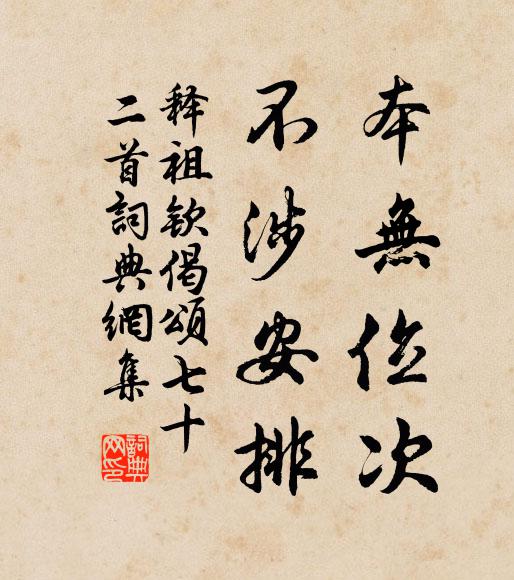 本無位次
不涉安排
释祖钦偈頌七十
二首詞典網集
詞典
网印